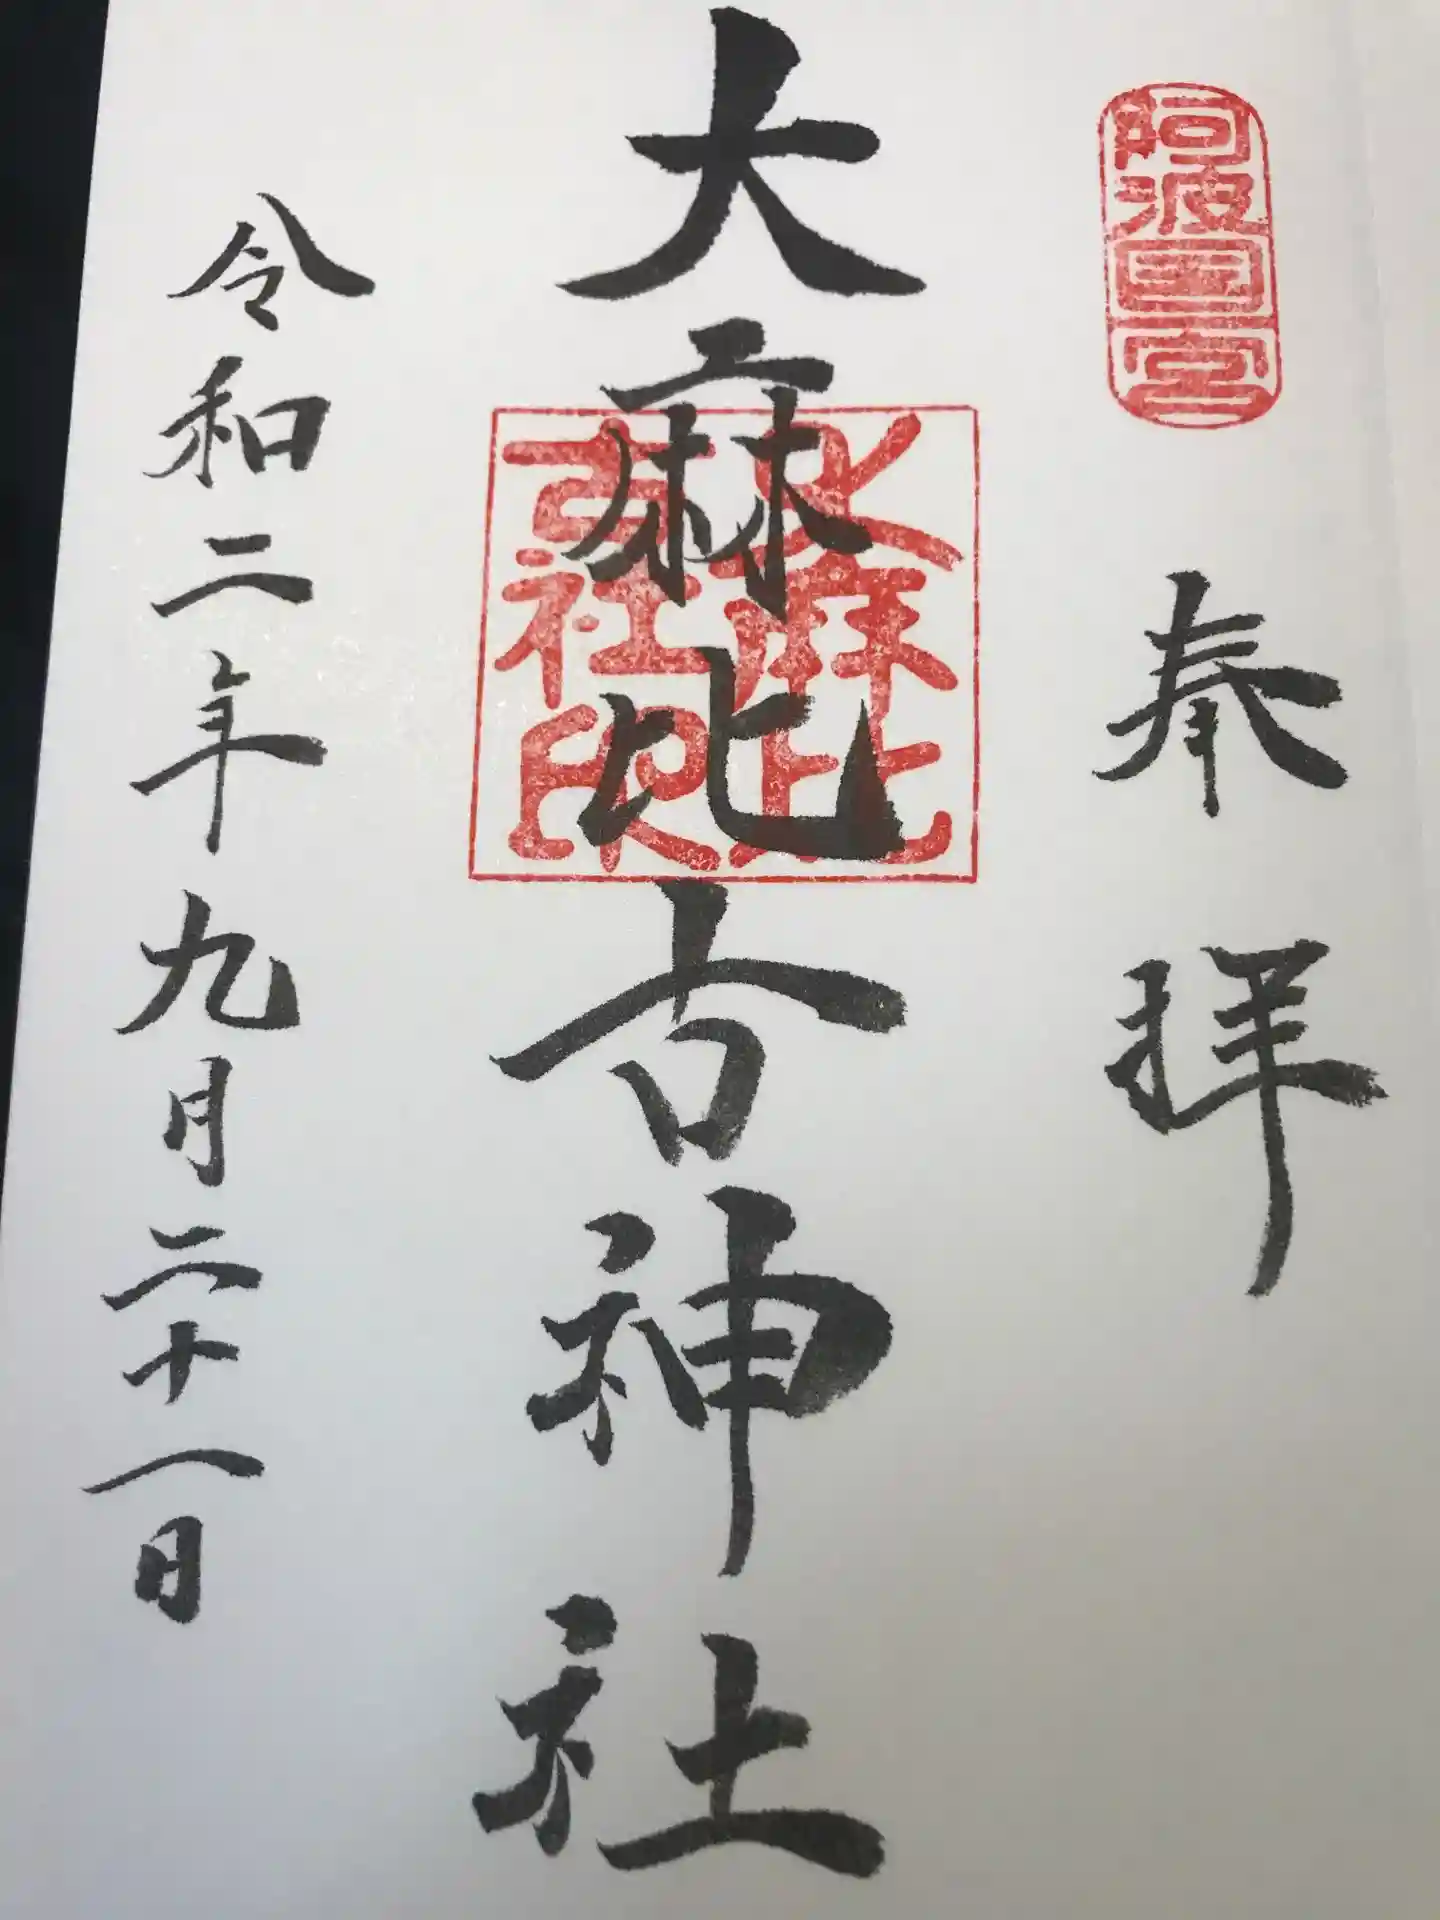 阿波國一宮
奉拝
大麻比古神社
大麻比古社印
令和二年九月二十一日